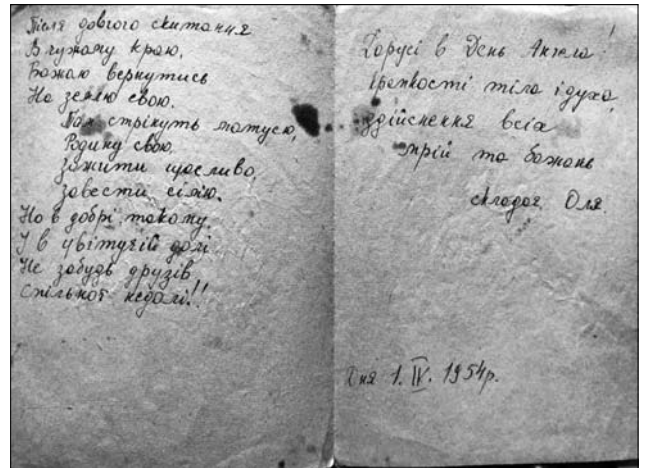 Після довгого скитання
В чужому краю,
Бажаю вернутись
На землю свою.
Там стрінуть матусю,
Родину свою.
Зажити щасливо,
Завести сімю.
Но в добрі такому
У в цвітучій долі
Не забудь друзів
Спільної недолі!!
Дарусі в День Ангела!
Крепкості тіла і духа,
здійснення всіх
мрій та бажань
складає Оля.
Дня 1. IV. 1954р.